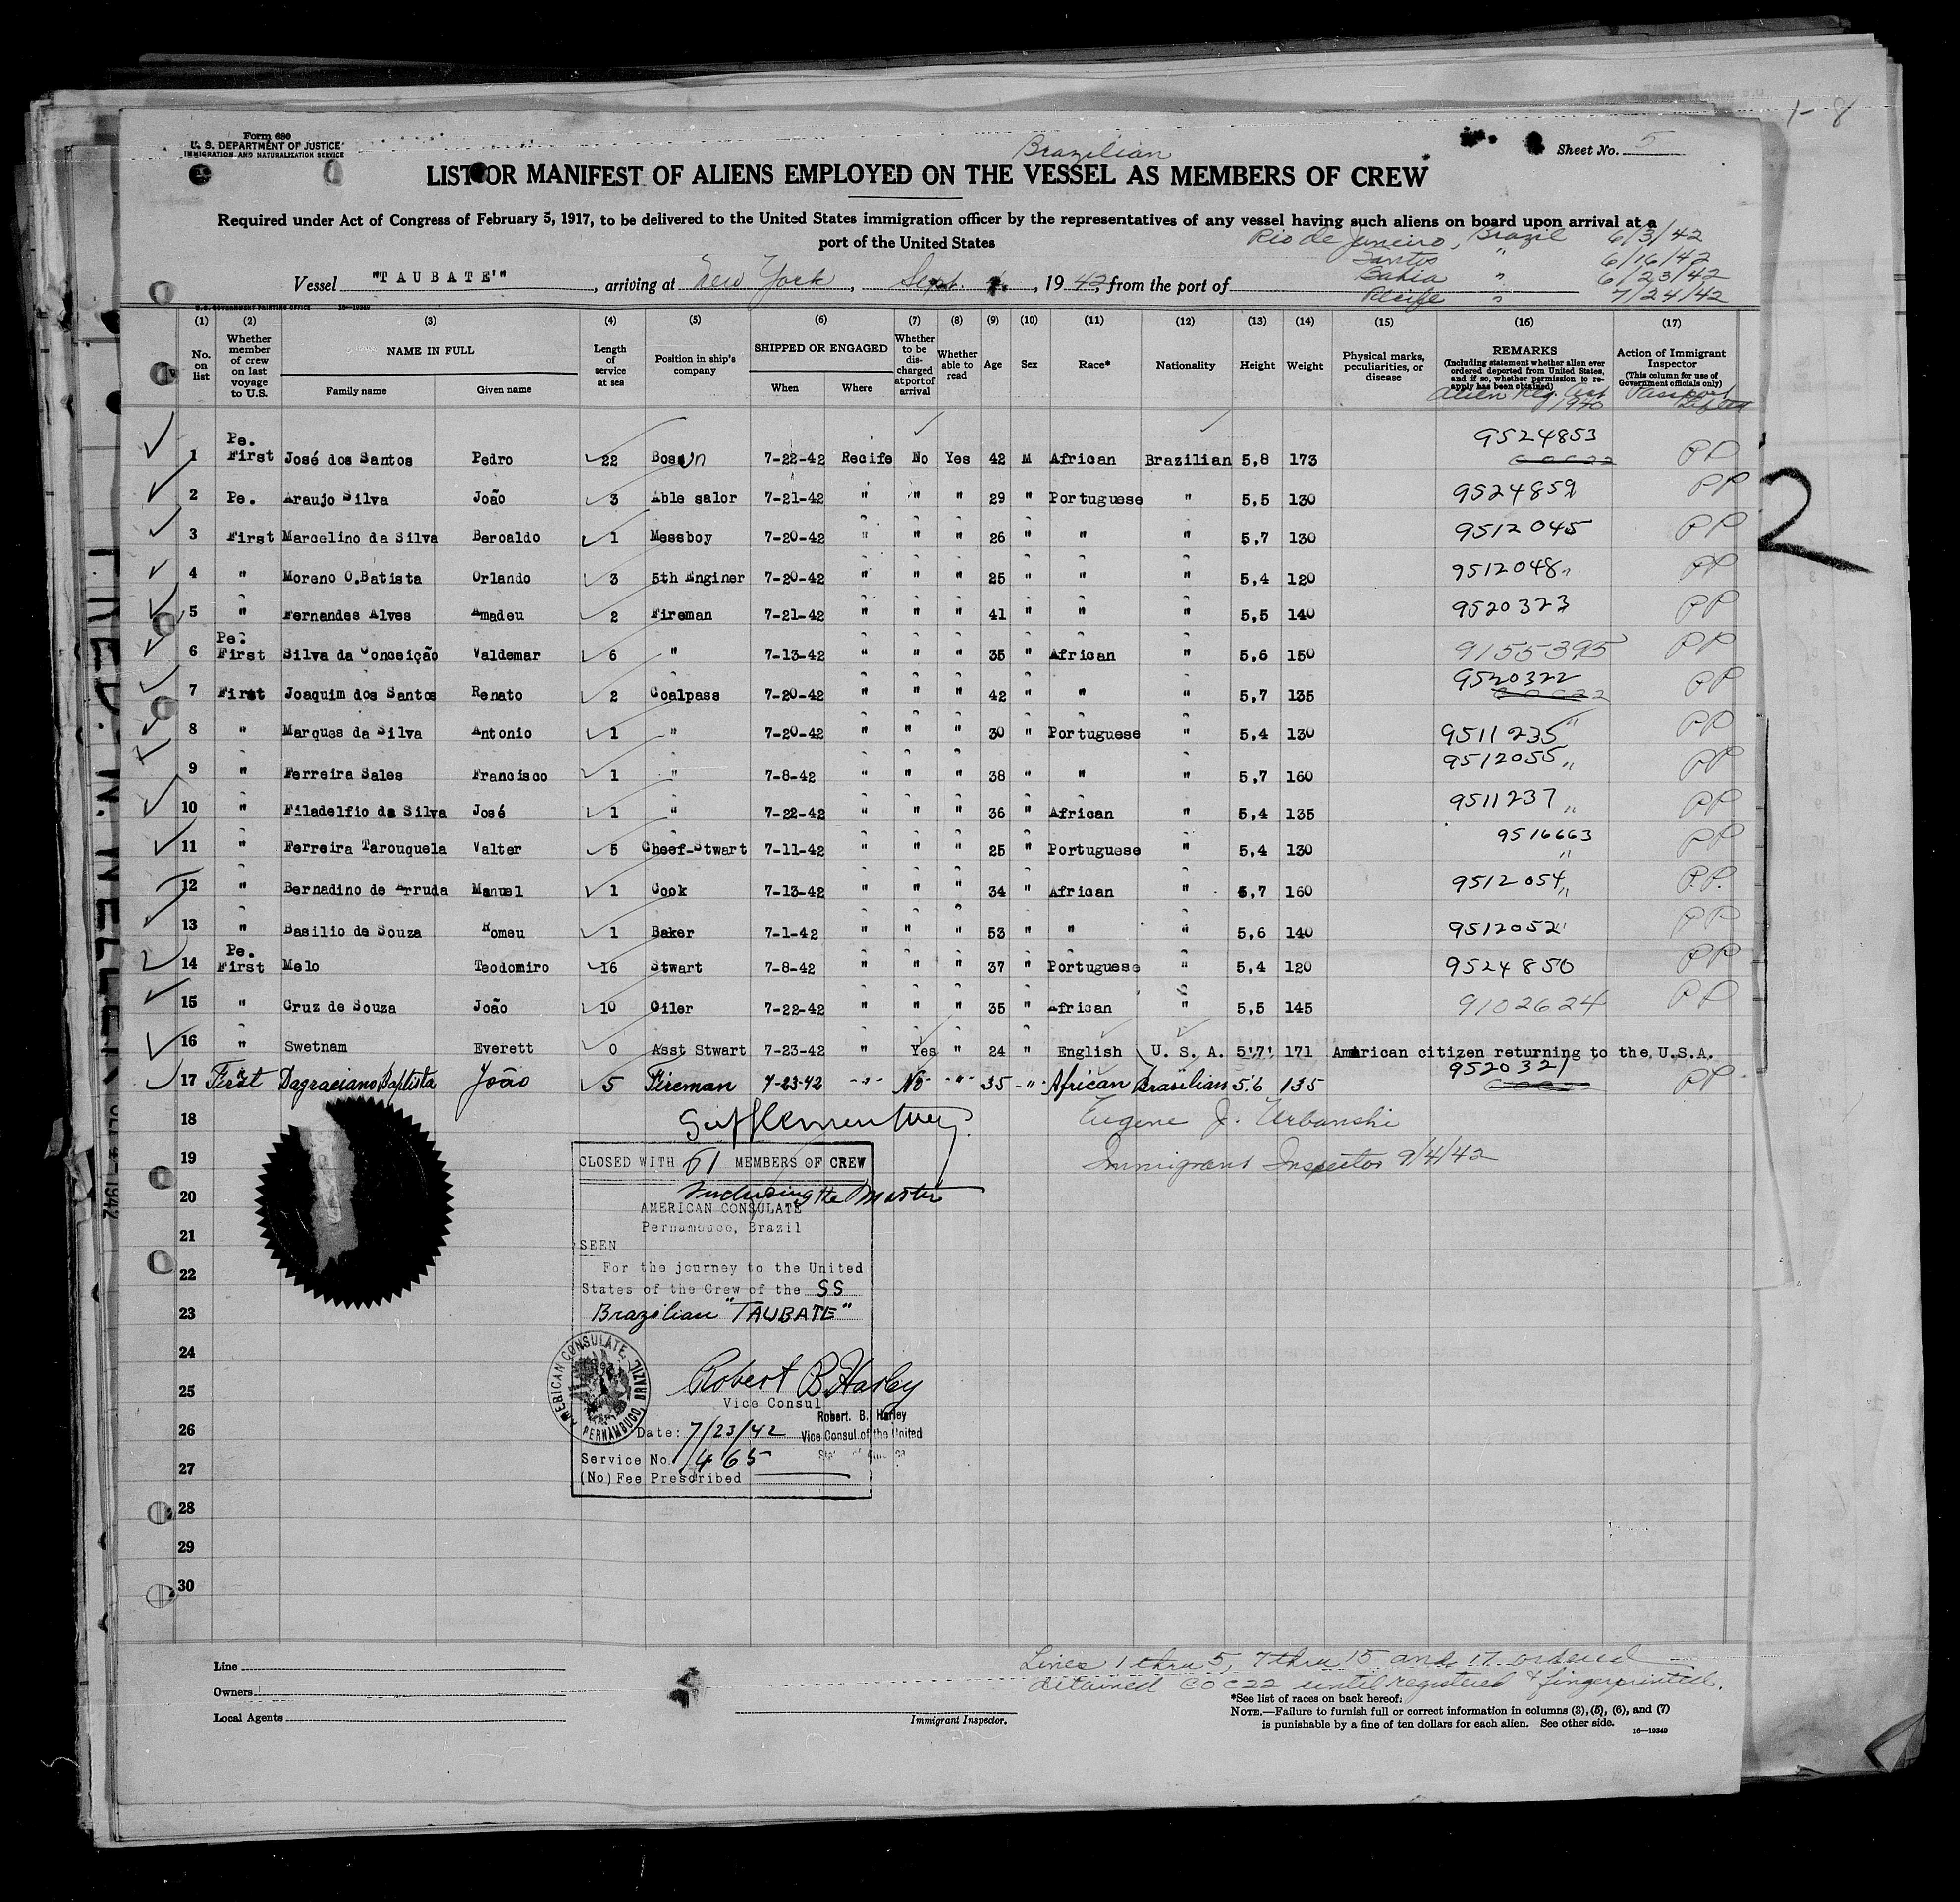 Form 680
U. S. DEPARTMENT OF JUSTICE
IMMIGRATION AND NATURALIZATION SERVICE
Sheet No. 5
Brazilian
LIST OR MANIFEST OF ALIENS EMPLOYED ON THE VESSEL AS MEMBERS OF CREW
Required under Act of Congress of February 5, 1917, to be delivered to the United States immigration officer by the representatives of any vessel having such aliens on board upon arrival at a
port of the United States
Rio de Janeiro, Brazil 6/3/42
Santos " 6/16/42
Bahia " 6/23/42
Recife " 7/24/42
Vessel "TAUBATE'", arriving at New York, Sept. 1942, from the port of
U.S. GOVERNMENT PRINTING OFFICE 16—19349
(1) (2) (3) (4) (5) (6) (7) (8) (9) (10) (11) (12) (13) (14) (15) (16) (17)
No. on list
Whether member of crew on last voyage to U.S.
NAME IN FULL
Family name Given name
Length of service at sea
Position in ship's company
SHIPPED OR ENGAGED
When Where
Whether to be discharged at port of arrival
Whether able to read
Age
Sex
Race*
Nationality
Height
Weight
Physical marks, peculiarities, or disease
REMARKS
(Including statement whether alien ever ordered deported from United States, and if so, whether permission to reapply has been obtained)
Alien Reg. Act 1940
Action of Immigrant Inspector
(This column for use of Government officials only)
Passport
1 Pe. First José dos Santos Pedro 22 Bosun 7-22-42 Recife No Yes 42 M African Brazilian 5,8 173 9524853 PP
2 Pe. Araujo Silva João 3 Able salor 7-21-42 " " " 29 " Portuguese " 5,5 130 9524859 PP
3 First Marcelino da Silva Beroaldo 1 Messboy 7-20-42 " " " 26 " " " 5,7 130 9512045 PP
4 " Moreno O.Batista Orlando 3 5th Enginer 7-20-42 " " " 25 " " " 5,4 120 9512048 " PP
5 " Fernandes Alves Amadeu 2 Fireman 7-21-42 " " " 41 " " " 5,5 140 9520323 PP
6 Pe. First Silva da Conceição Valdemar 6 " 7-13-42 " " " 35 " African " 5,6 150 9155395 PP
7 First Joaquim dos Santos Renato 2 Coalpass 7-20-42 " " " 42 " " " 5,7 135 9520322 PP
8 " Marques da Silva Antonio 1 " 7-20-42 " " " 30 " Portuguese " 5,4 130 9511235 " PP
9 " Ferreira Sales Francisco 1 " 7-8-42 " " " 38 " " " 5,7 160 9512055 " PP
10 " Filadelfio da Silva José 1 " 7-22-42 " " " 36 " African " 5,4 135 9511237 " PP
11 " Ferreira Tarouquela Valter 5 Cheef-Stwart 7-11-42 " " " 25 " Portuguese " 5,4 130 9516663 " PP
12 " Bernadino de Arruda Manuel 1 Cook 7-13-42 " " " 34 " African " 5,7 160 9512054 " P.P.
13 " Basilio de Souza Romeu 1 Baker 7-1-42 " " " 53 " " " 5,6 140 9512052 " PP
14 Pe. First Melo Teodomiro 16 Stwart 7-8-42 " " " 37 " Portuguese " 5,4 120 9524850 PP
15 " Cruz de Souza João 10 Oiler 7-22-42 " " " 35 " African " 5,5 145 9102624 PP
16 " Swetnam Everett 0 Asst Stwart 7-23-42 " Yes " 24 " English U. S. A. 5'7' 171 American citizen returning to the U.S.A.
17 First Dagraciano Baptista João 5 Fireman 7-23-42 " No " 35 " African Brasilian 5'6 135 9520321 PP
18
19
20
21
22
23
24
25
26
27
28
29
30
Supplementary
Eugene J. Urbanski
Immigrant Inspector 9/4/42
CLOSED WITH 61 MEMBERS OF CREW
Including the Master
AMERICAN CONSULATE
Pernambuco, Brazil
SEEN
For the journey to the United
States of the Crew of the SS
Brazilian "TAUBATE"
AMERICAN CONSULATE
PERNAMBUCO, BRAZIL
Robert B. Harley
Vice Consul
Robert. B. Harley
Vice Consul of the United
Date: 7/23/42
Service No. 1465
(No) Fee Prescribed
2
Line
Owners
Local Agents
Immigrant Inspector.
Lines 1 thru 5, 7 thru 15 and 17 ordered
detained COC22 until registered & fingerprinted.
*See list of races on back hereof.
NOTE.—Failure to furnish full or correct information in columns (3), (5), (6), and (7)
is punishable by a fine of ten dollars for each alien. See other side.
16—19349